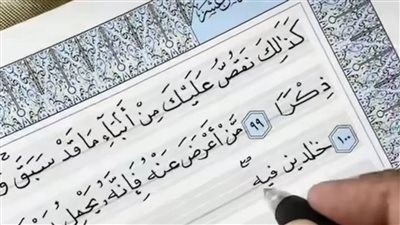 كَذَٰلِكَ نَقُصُّ عَلَيْكَ مِنْ أَنْبَاءِ مَا قَدْ سَبَقَ
ذِكْرًا ٩٩ مَّنْ أَعْرَضَ عَنْهُ فَإِنَّهُ يَحْمِلُ
١٠٠ خَٰلِدِينَ فِيهِ